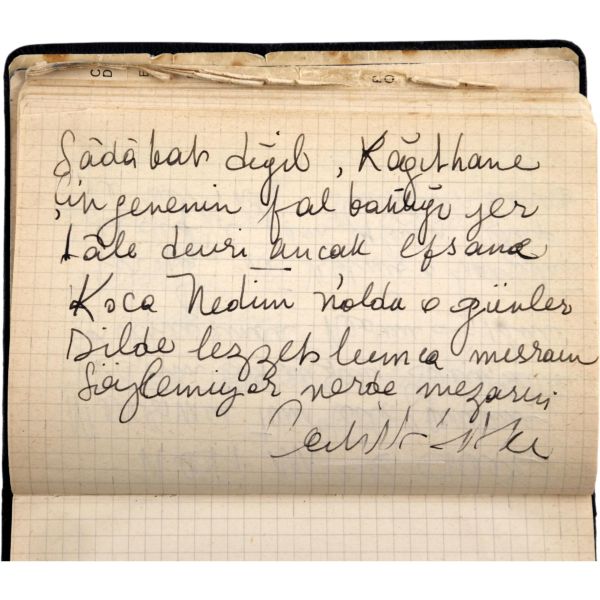 Sâdâbat değil, Kâğıthane
Çingenenin fal baktığı yer
Lâle devri ancak efsane
Koca Nedim n'oldu o günler
Dilde lezzet bunca mısraın
Söylemiyor nerde mezarın